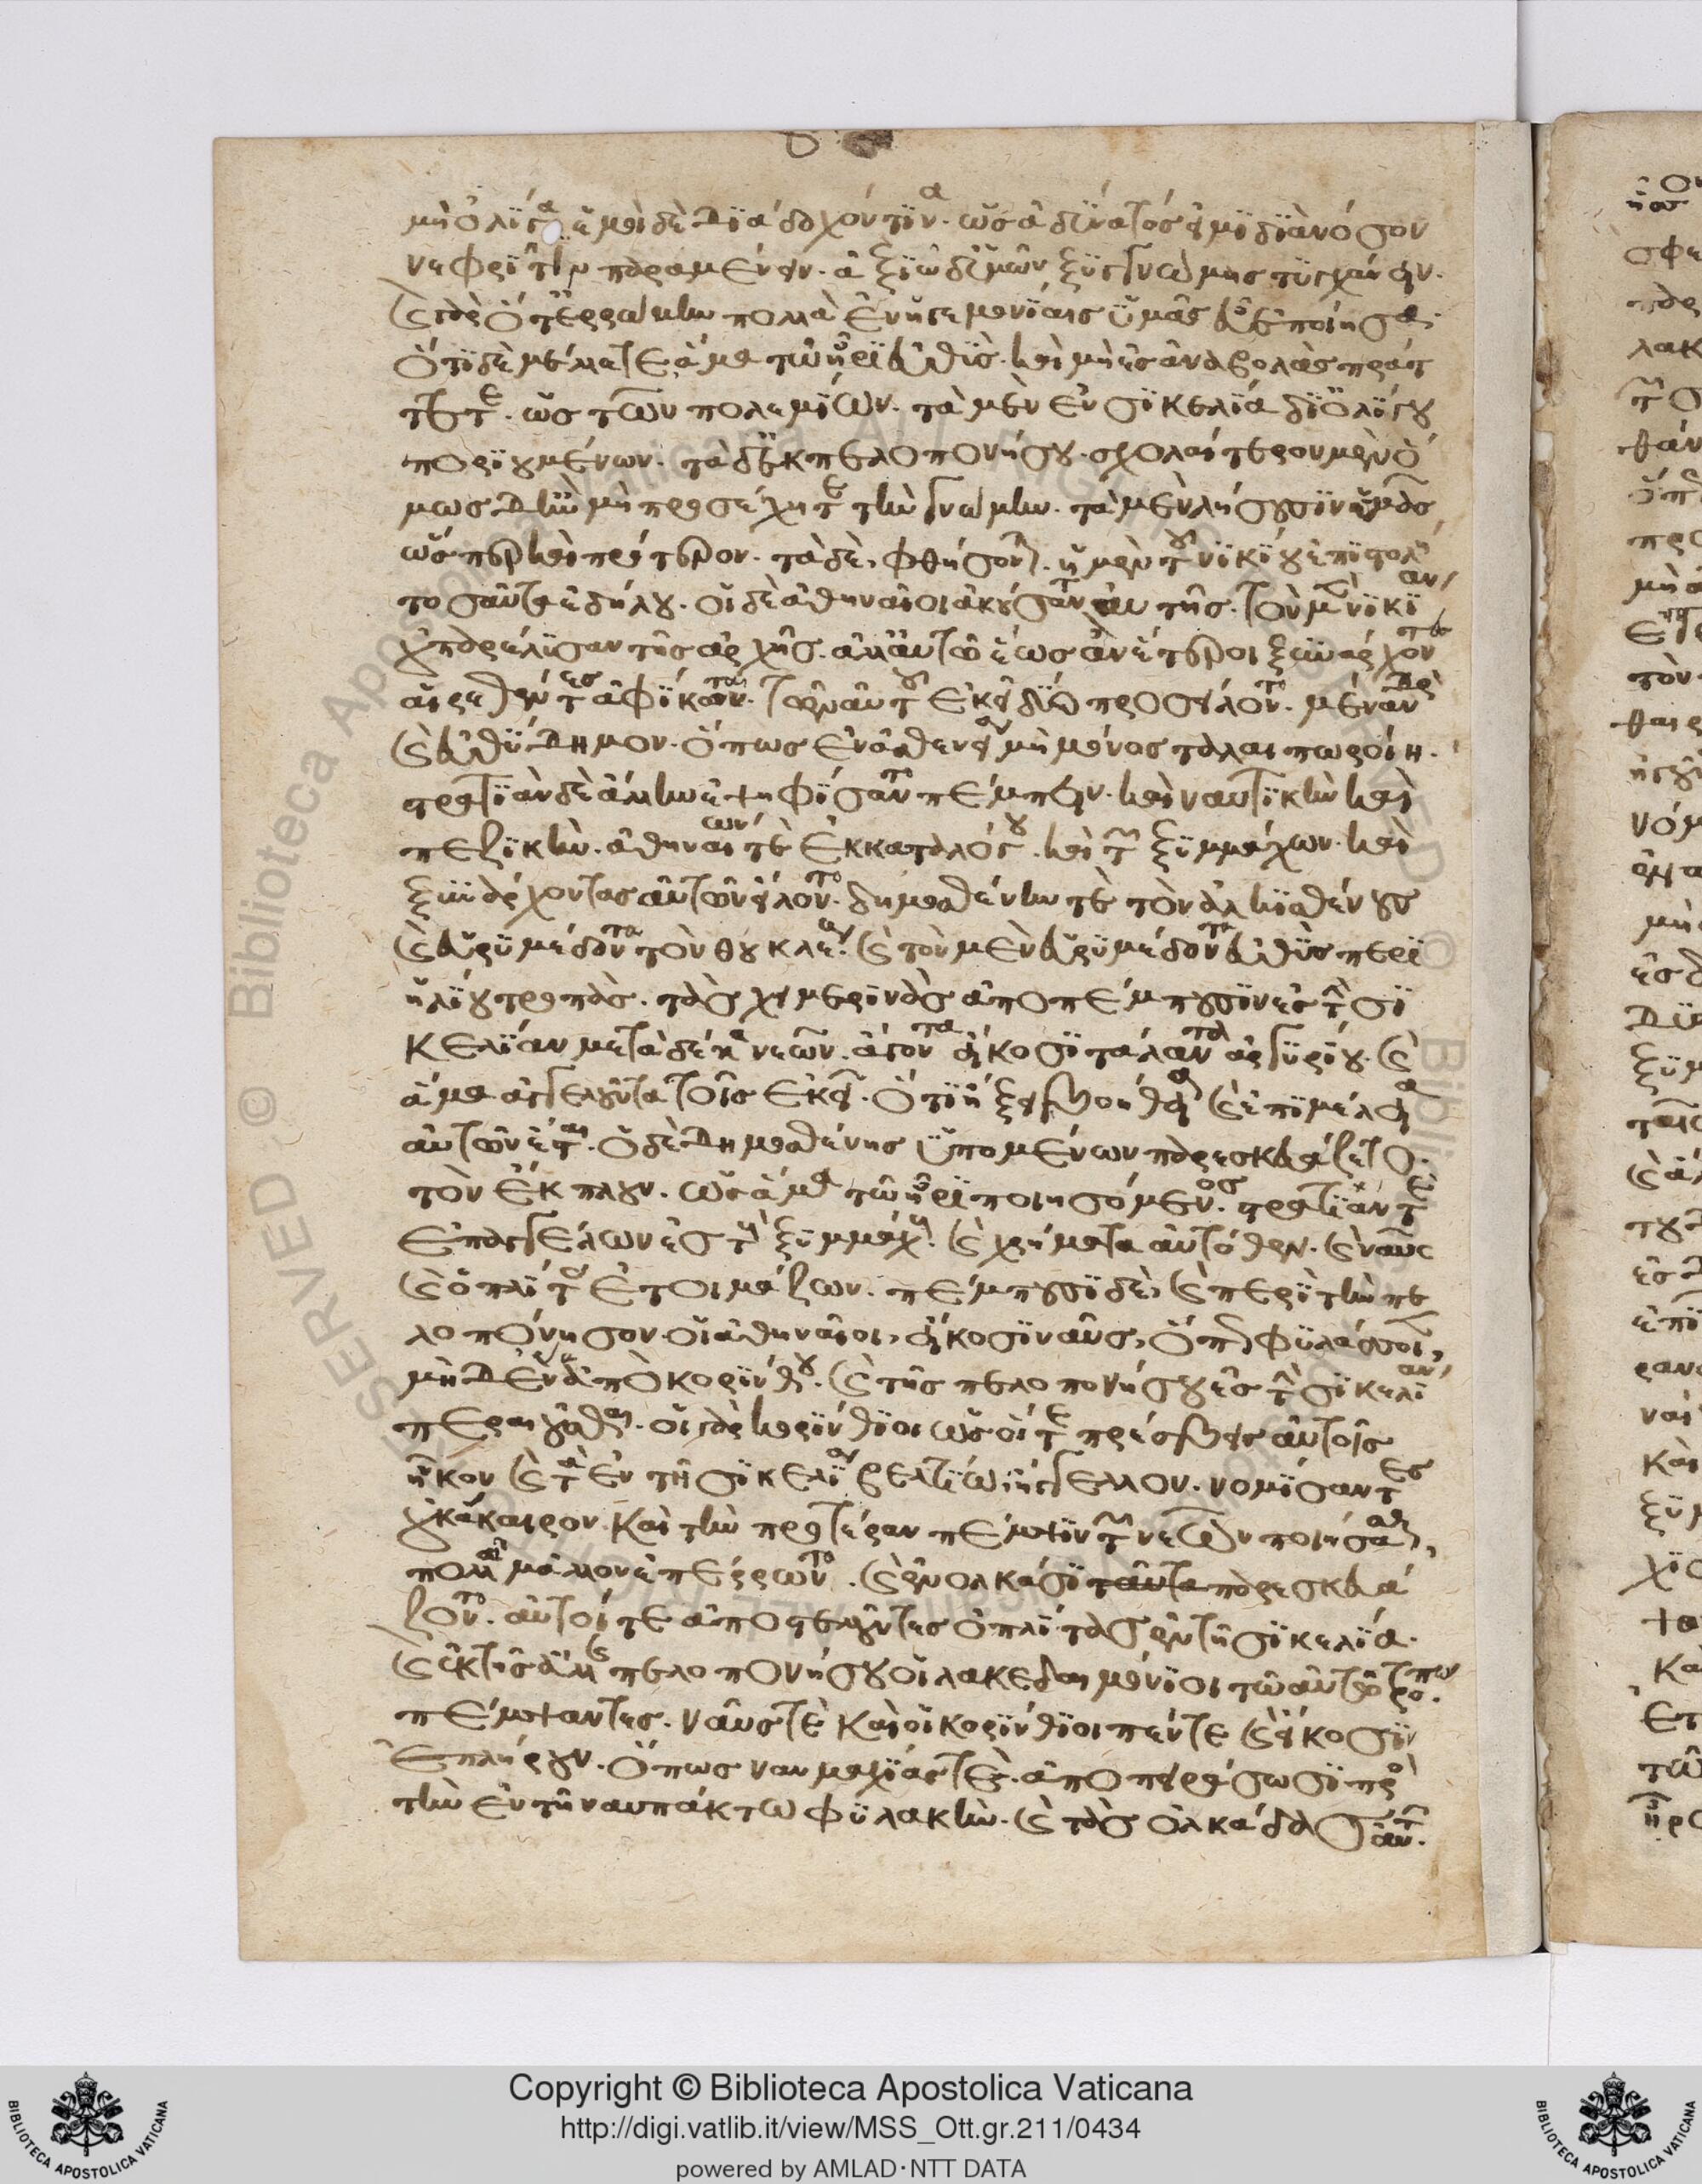 μὴ ὀλίγα. ἐμοὶ δὲ διάδοχόν τινα. ὡς ἀδύνατός εἰμι διὰ νόσον
νεφρῖτιν παραμένειν. ἀξιῶ δ' ὑμῶν ξυγγνώμης τυγχάνειν.
καὶ γὰρ ὅτ' ἐρρώμην πολλὰ ἐν ἡγεμονίαις ὑμᾶς εὖ ἐποίησα.
ὅτι δὲ μέλλετε ἅμα τῷ ἦρι εὐθὺς. καὶ μὴ ἐς ἀναβολὰς πράτ
τετε. ὡς τῶν πολεμίων. τὰ μὲν ἐν σικελία δι' ὀλίγου
ποριουμένων. τὰ δ' ἐκ πελοποννήσου. σχολαίτερον μὲν ὅ
μως δ' ἢν μὴ προσέχητε τὴν γνώμην. τὰ μὲν λήσουσιν ὑμᾶς
ὥσπερ καὶ πρότερον. τὰ δὲ, φθήσονται. ἡ μὲν τοῦ νικίου ἐπιστολὴ
τοσαῦτα ἐδήλου. οἱ δὲ ἀθηναῖοι ἀκούσαντες αὐτῆς. τὸν μὲν νικίαν
οὐ παρέλυσαν τῆς ἀρχῆς. ἀλλ' αὐτῷ ἕως ἂν ἕτεροι ξυνάρχοντες
αἱρεθέντες ἀφίκωνται. τῶν αὐτοῦ ἐκεῖ δύο προσείλοντο. μένανδρον
καὶ εὐθύδημον. ὅπως ἐν ἀσθενείᾳ μὴ μόνος ταλαιπωροίη.
στρατιὰν δὲ ἄλλην ἐψηφίσαντο πέμπειν. καὶ ναυτικὴν καὶ
πεζικὴν. ἀθηναίων τὲ ἐκ καταλόγου. καὶ τῶν ξυμμάχων. καὶ
ξυνάρχοντας αὐτῷ εἵλοντο. δημοσθένην τὲ τὸν ἀλκισθένους
καὶ εὐρυμέδοντα τὸν θουκλέους. καὶ τὸν μὲν εὐρυμέδοντα εὐθὺς περὶ
ἡλίου τροπὰς. τὰς χειμερινὰς ἀποπέμπουσιν ἐς τὴν σι
κελίαν μετὰ δέκα νεῶν. ἄγοντα εἴκοσι τάλαντα ἀργυρίου. καὶ
ἅμα ἀγγελοῦντα τοῖς ἐκεῖ. ὅτι ἥξει βοήθεια καὶ ἐπιμέλεια
αὐτῶν ἔσται. ὁ δὲ δημοσθένης ὑπομένων παρεσκευάζετο.
τὸν ἔκπλουν. ὡς ἅμα τῷ ἦρι ποιησόμενος. στρατιάν τὲ
ἐπαγγέλλων ἐς τοὺς ξυμμάχους. καὶ χρήματα αὐτόθεν. καὶ ναῦς
καὶ ὁπλίτας ἑτοιμάζων. πέμπουσι δὲ, καὶ περὶ τὴν πε
λοπόννησον οἱ ἀθηναῖοι, εἴκοσι ναῦς, ὅπως φυλάσσοιεν,
μηδένα ἀπὸ κορίνθου. καὶ τῆς πελοποννήσου ἐς τὴν σικελίαν
περαιοῦσθαι. οἱ γὰρ κορίνθιοι ὡς οἵ τε πρέσβεις αὐτοῖς
ἧκον καὶ τὰ ἐν τῇ σικελίᾳ βελτίω ἤγγελλον. νομίσαντες
οὐκ ἄκαιρον. καὶ τὴν προτέραν πέμψιν τῶν νεῶν ποιήσασθαι,
πολλῷ μᾶλλον ἐπέρρωντο. καὶ ἐν ὁλκάσι ταῦτα παρεσκευά
ζοντο. αὐτοί τε ἀποστελοῦντες ὁπλίτας ἐν τῇ σικελίᾳ.
καὶ ἐκ τῆς ἄλλης πελοποννήσου οἱ λακεδαιμόνιοι τῷ αὐτῷ τρόπῳ.
πέμψαντες. ναῦς τὲ καὶ οἱ κορίνθιοι πέντε καὶ εἴκοσι
ἐπλήρουν. ὅπως ναυμαχίας τὲ. ἀποπειράσωσι πρὸς
τὴν ἐν τῇ ναυπάκτῳ φυλακὴν. καὶ τὰς ὁλκάδας αὐτῶν.
Copyright © Biblioteca Apostolica Vaticana
http://digi.vatlib.it/view/MSS_Ott.gr.211/0434
powered by AMLAD·NTT DATA